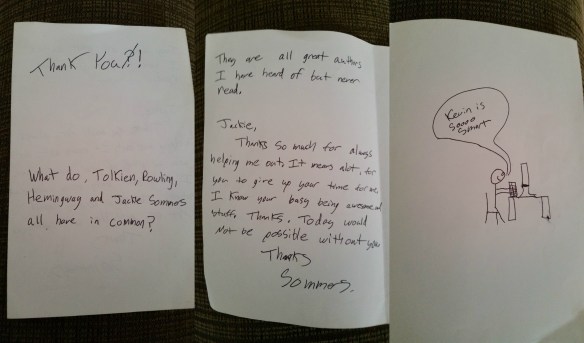 Thank You?!
What do, Tolkien, Rowling,
Hemingway and Jackie Sommers
all have in common?
They are all great authors
I have heard of but never
read.
Jackie,
Thanks so much for always
helping me out. It means alot, for
you to give up your time for me
I know your busy being awesome and
stuff. Thanks. Today would
not be possible without you
Thanks
Sommers.
Kevin is
soooo
smart